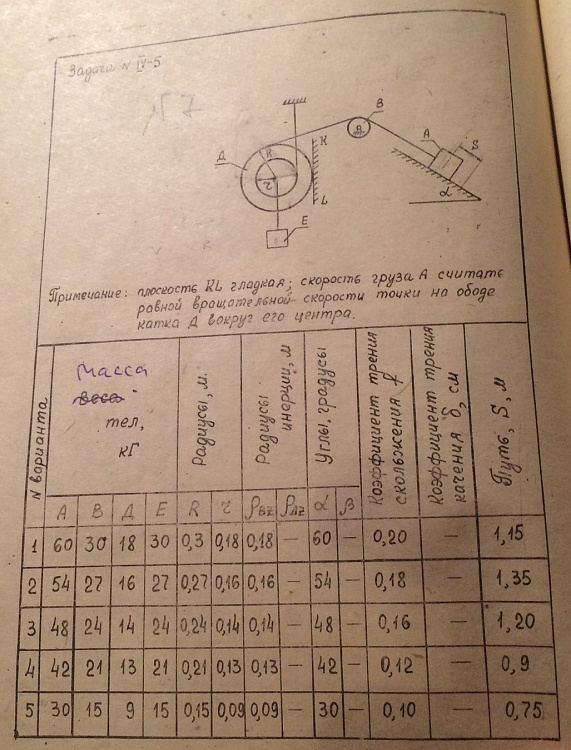 Задача N IV-5
N 7
В
К
А
S
Д
R
В
r
L
α
Е
Примечание: плоскость KL гладкая; скорость груза А считать
равной вращательной скорости точки на ободе
катка Д вокруг его центра.
N варианта
Масса
веса
тел,
кГ
Радиусы, м.
Радиусы
инерции, м
Углы, градусы
Коэффициент трения
скольжения f
Коэффициент трения
качения δ, см
Путь, S, м
А В Д Е R r ρBZ ρДZ α β
1 60 30 18 30 0,3 0,18 0,18 — 60 — 0,20 — 1,15
2 54 27 16 27 0,27 0,16 0,16 — 54 — 0,18 — 1,35
3 48 24 14 24 0,24 0,14 0,14 — 48 — 0,16 — 1,20
4 42 21 13 21 0,21 0,13 0,13 — 42 — 0,12 — 0,9
5 30 15 9 15 0,15 0,09 0,09 — 30 — 0,10 — 0,75